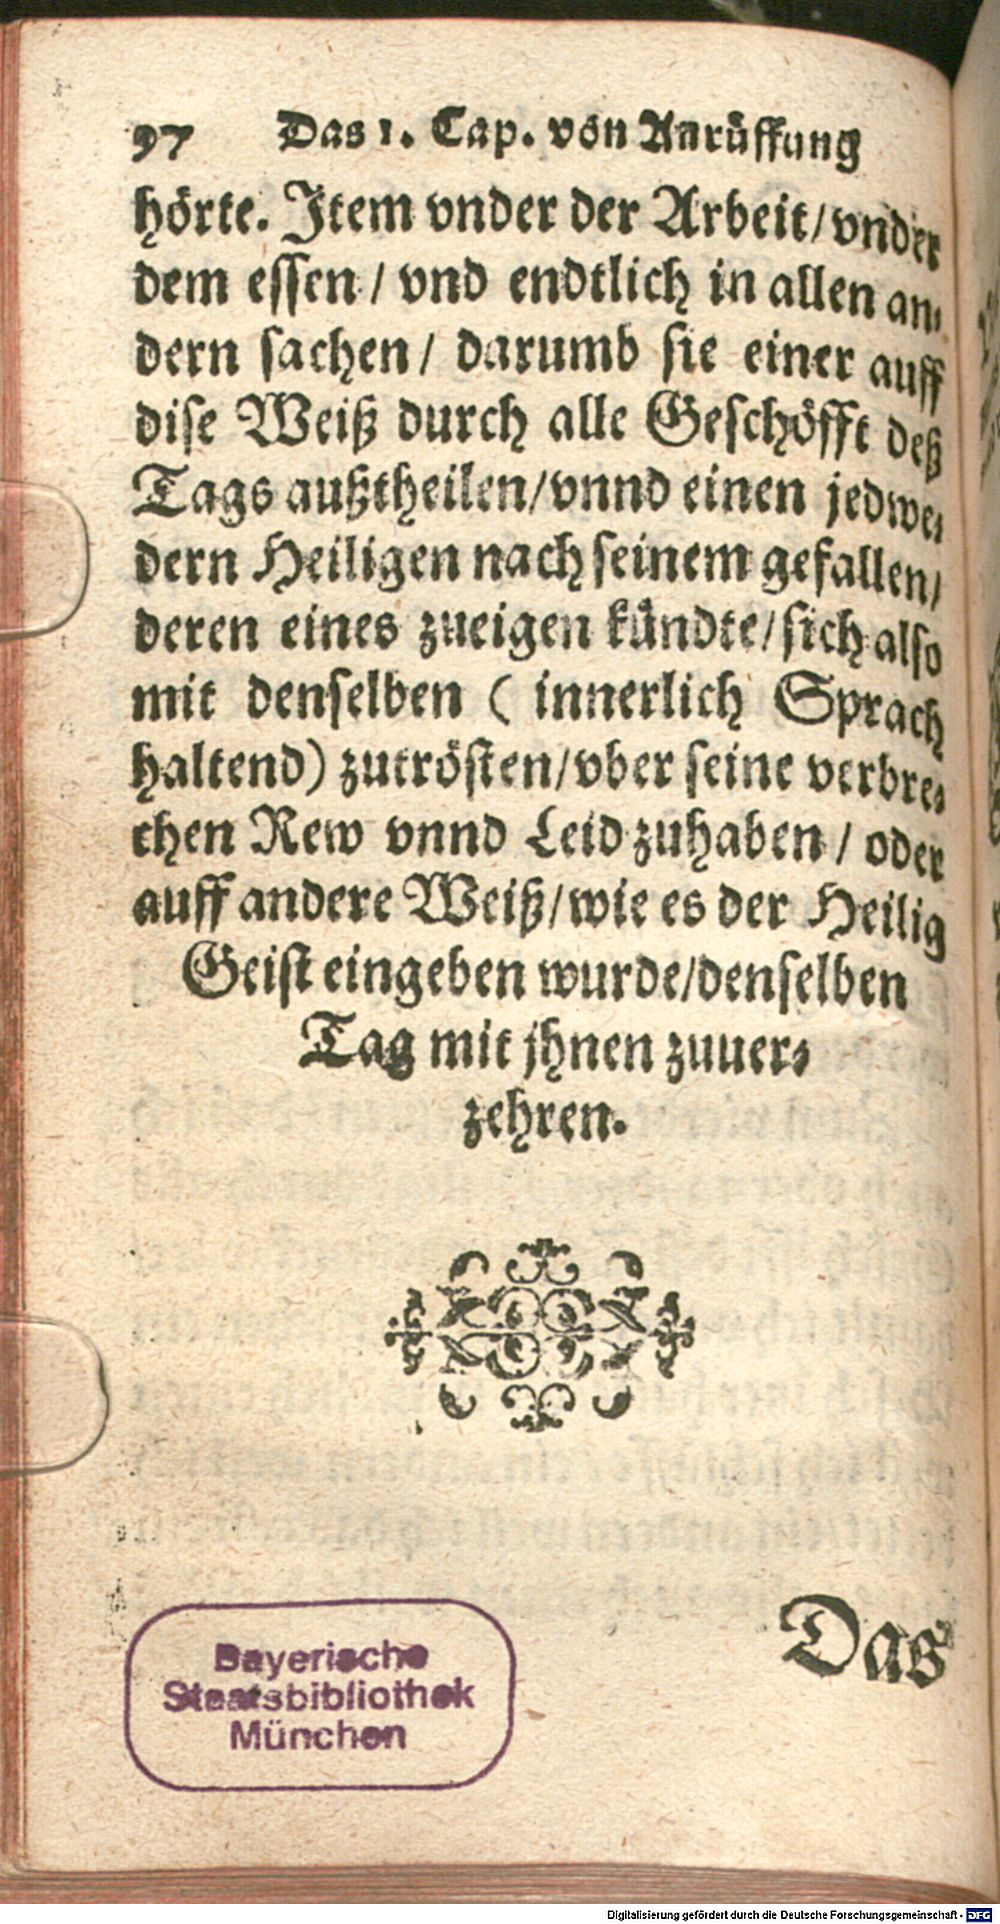 97 Das 1. Cap. von Anrüffung
hörte. Item vnder der Arbeit/ vnder
dem essen/ vnd endtlich in allen an-
dern sachen/ darumb sie einer auff
dise Weiß durch alle Geschöfft deß
Tags außtheilen/ vnnd einen jedwe-
dern Heiligen nach seinem gefallen/
deren eines zueigen kündte/ sich also
mit denselben ( innerlich Sprach
haltend) zutrösten/ vber seine verbre-
chen Rew vnnd Leid zuhaben/ oder
auff andere Weiß/ wie es der Heilig
Geist eingeben wurde/ denselben
Tag mit jhnen zuuer-
zehren.
Das
Bayerische
Staatsbibliothek
München
Digitalisierung gefördert durch die Deutsche Forschungsgemeinschaft - DFG